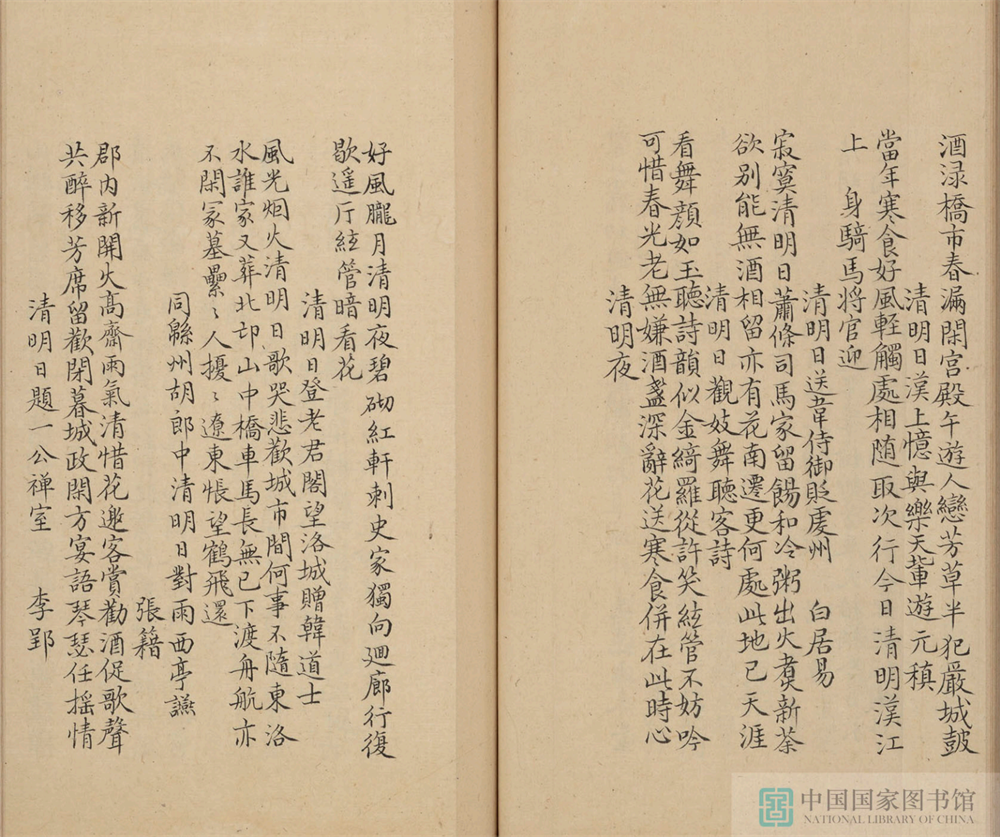 酒渌橋市春漏閑宮殿午遊人戀芳草半犯嚴城鼓
清明日漢上憶與樂天輩遊元稹
當年寒食好風輕觸處相随取次行今日清明漢江
上　身騎馬将官迎
清明日送韋侍御貶虔州　白居易
寂寞清明日蕭條司馬家留餳和冷粥出火煑新茶
欲别能無酒相留亦有花南遷更何處此地已天涯
清明日觀妓舞聽客詩
看舞顔如玉聽詩韻似金綺羅從許笑絃管不妨吟
可惜春光老無嫌酒盞深辭花送寒食併在此時心
清明夜
好風朧月清明夜碧砌紅軒刺史家獨向廻廊行復
歇遥厅絃管暗看花
清明日登老君閣望洛城贈韓道士
風光烟火清明日歌哭悲歡城市間何事不隨東洛
水誰家又葬北邙山中橋車馬長無已下渡舟航亦
不閑冢墓纍〻人擾〻遼東悵望鶴飛還
同緜州胡郎中清明日對雨西亭讌
張籍
郡内新開火髙齋雨氣清惜花邀客賞勸酒促歌聲
共醉移芳席留歡閉暮城政閑方宴語琴瑟任摇情
清明日題一公禅室　李郢
中国国家图书馆
NATIONAL LIBRARY OF CHINA